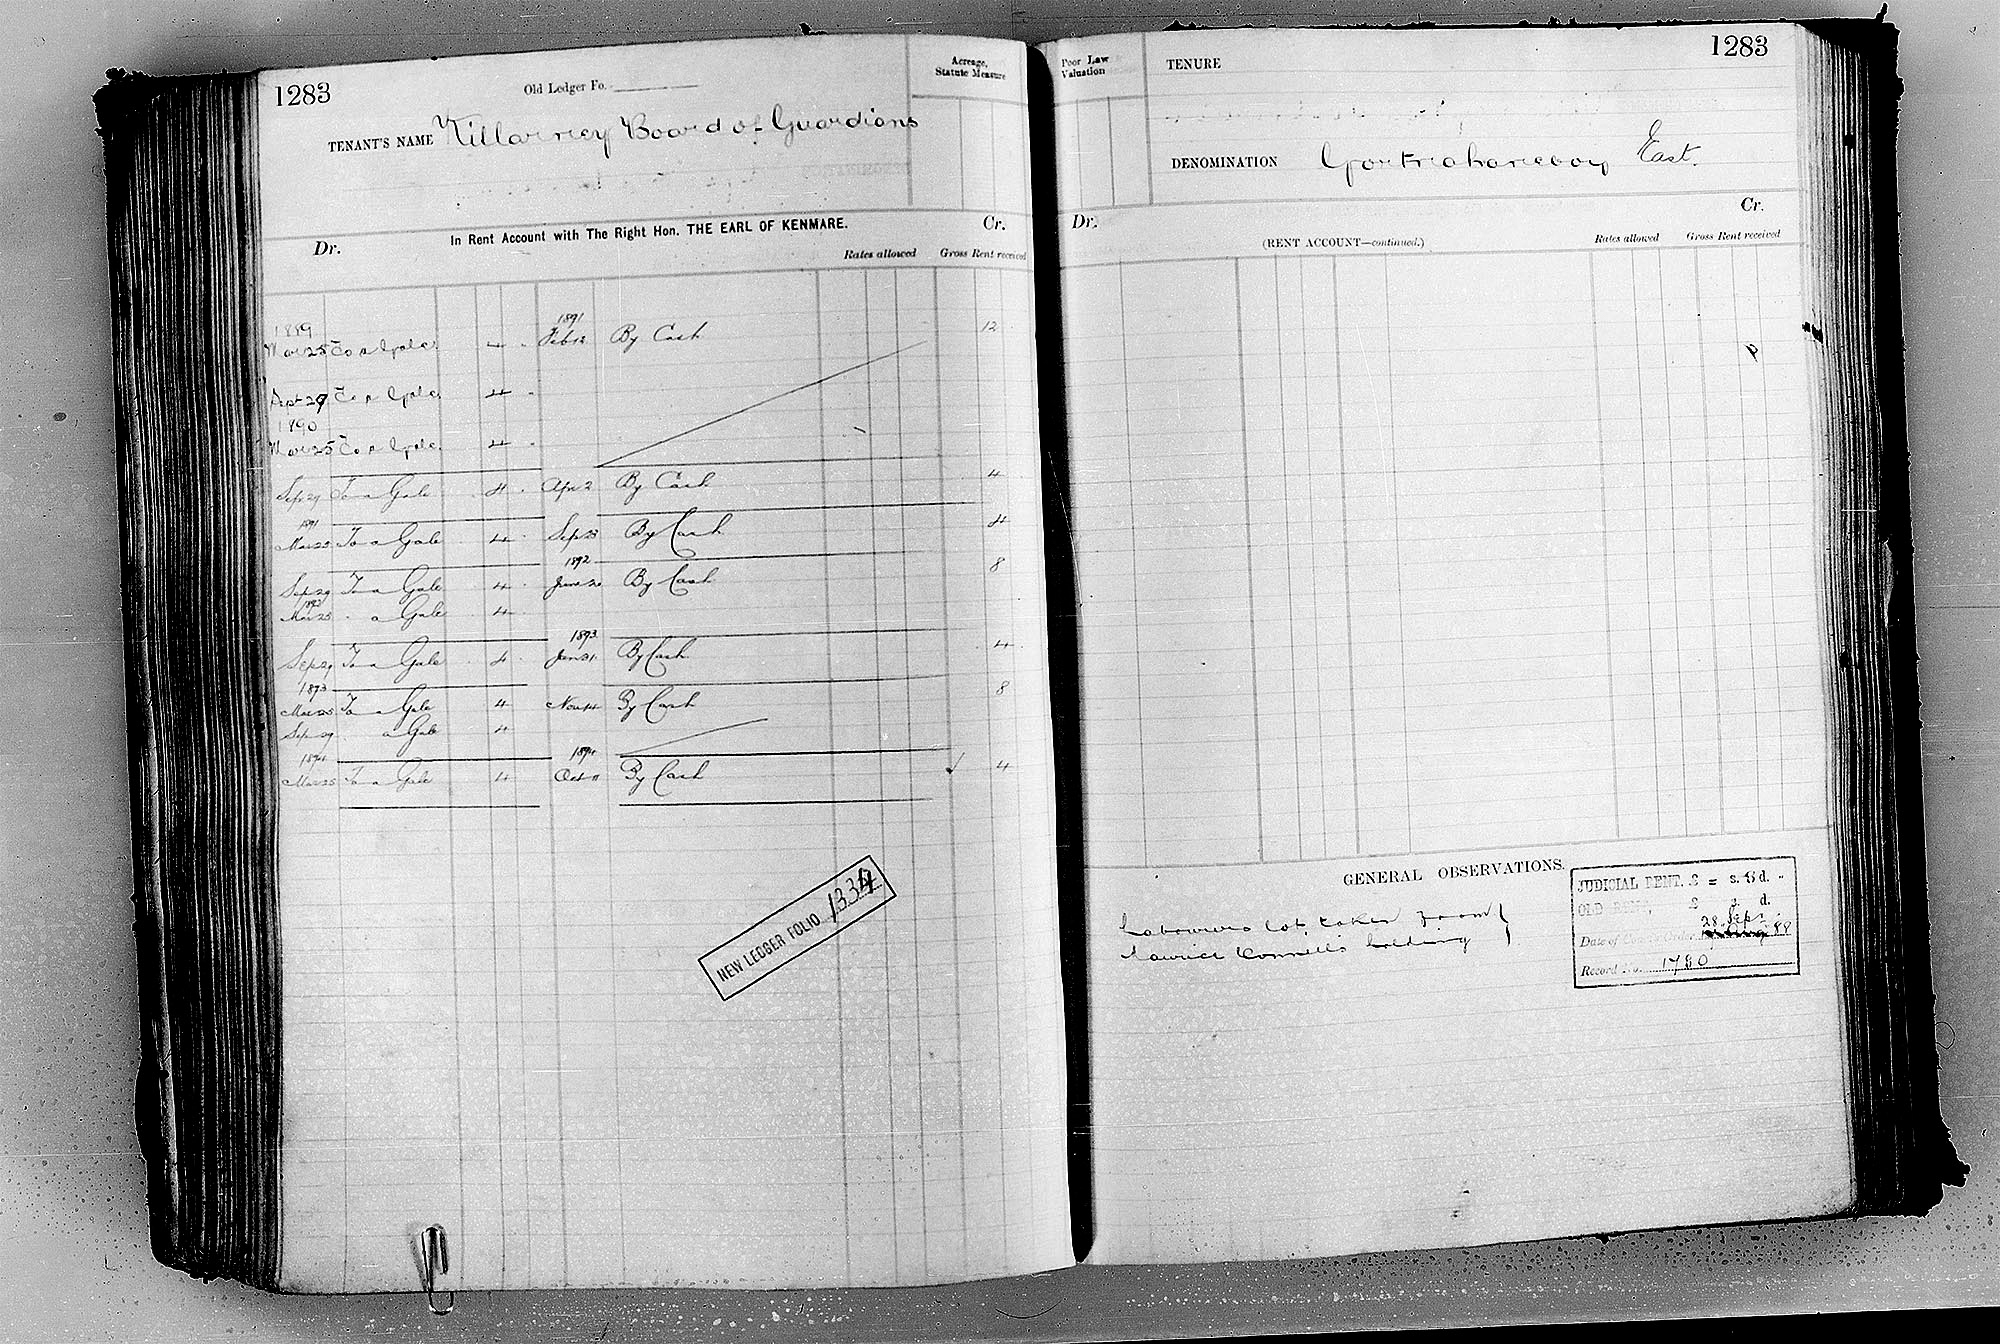 1283
Old Ledger Fo.
Acreage, Statute Measure
TENANT'S NAME Killarney Board of Guardians
In Rent Account with The Right Hon. THE EARL OF KENMARE.
Dr. Cr.
Rates allowed Gross Rent received
1889 1891
Mar 25 To a Gale 4 - Feb 12 By Cash 12
Sept 29 To a Gale 4 -
1890
Mar 25 To a Gale 4 -
Sep 29 To a Gale 4 - Apr 2 By Cash 4
1891
Mar 25 To a Gale 4 - Sep 23 By Cash 4
1892
Sep 29 To a Gale 4 - June 20 By Cash 8
1892
Mar 25 " a Gale 4 -
1893
Sep 29 To a Gale 4 - Jan 31 By Cash 4
1893
Mar 25 To a Gale 4 Nov 14 By Cash 8
Sep 29 a Gale 4
1894 1894
Mar 25 To a Gale 4 Oct 11 By Cash ✓ 4
NEW LEDGER FOLIO 1334
1283
Poor Law Valuation
TENURE
DENOMINATION Gortnahaneboy East.
Dr. Cr.
(RENT ACCOUNT—continued.)
Rates allowed Gross Rent received
GENERAL OBSERVATIONS.
Labourers lot taken from
Maurice Connell's holding
JUDICIAL RENT, £ = s. 8 d. -
OLD RENT, £ s. d.
28 Sept
Date of Court Order 88
Record No. 1780